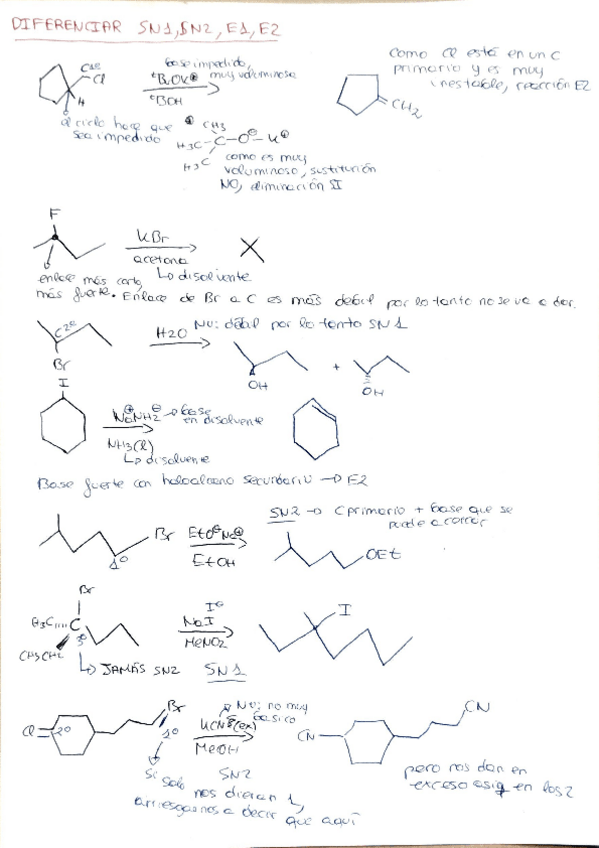 DIFERENCIAR SN1, SN2, E1, E2
base impedido,
muy voluminosa
Como Cl está en un C
primario y es muy
inestable, reacción E2
Cl
H
tBuOK
tBuOH
CH2
el ciclo hace que
sea impedido
CH3
H3C-C-O⊖-K⊕
H3C
como es muy
voluminoso, sustitución
NO, eliminación SI
F
KBr
acetona
X
↳ disolvente
enlace más corto,
más fuerte. Enlace de Br a C es más debil por lo tanto no se va a dar.
C2º
H2O
NU: débil por lo tanto SN1
Br
OH
+
OH
I
Na⊕NH2⊖ → base
en disolvente
NH3(l)
↳ disolvente
Base fuerte con haloalcano secundario → E2
SN2 → C primario + base que se
puede acercar
Br
EtO⊖Na⊕
EtOH
1º
OEt
Br
H3C
C
3º
CH3CH2
I⊖
NaI
MeNO2
I
↳ JAMÁS SN2
SN1
Br
NU: no muy
básico
Cl
2º
1º
KCN (ex)
MeOH
SN2
CN
CN
Si solo nos dieran 1,
arriesgarnos a decir que aquí
pero nos dan en
exceso asig en los 2